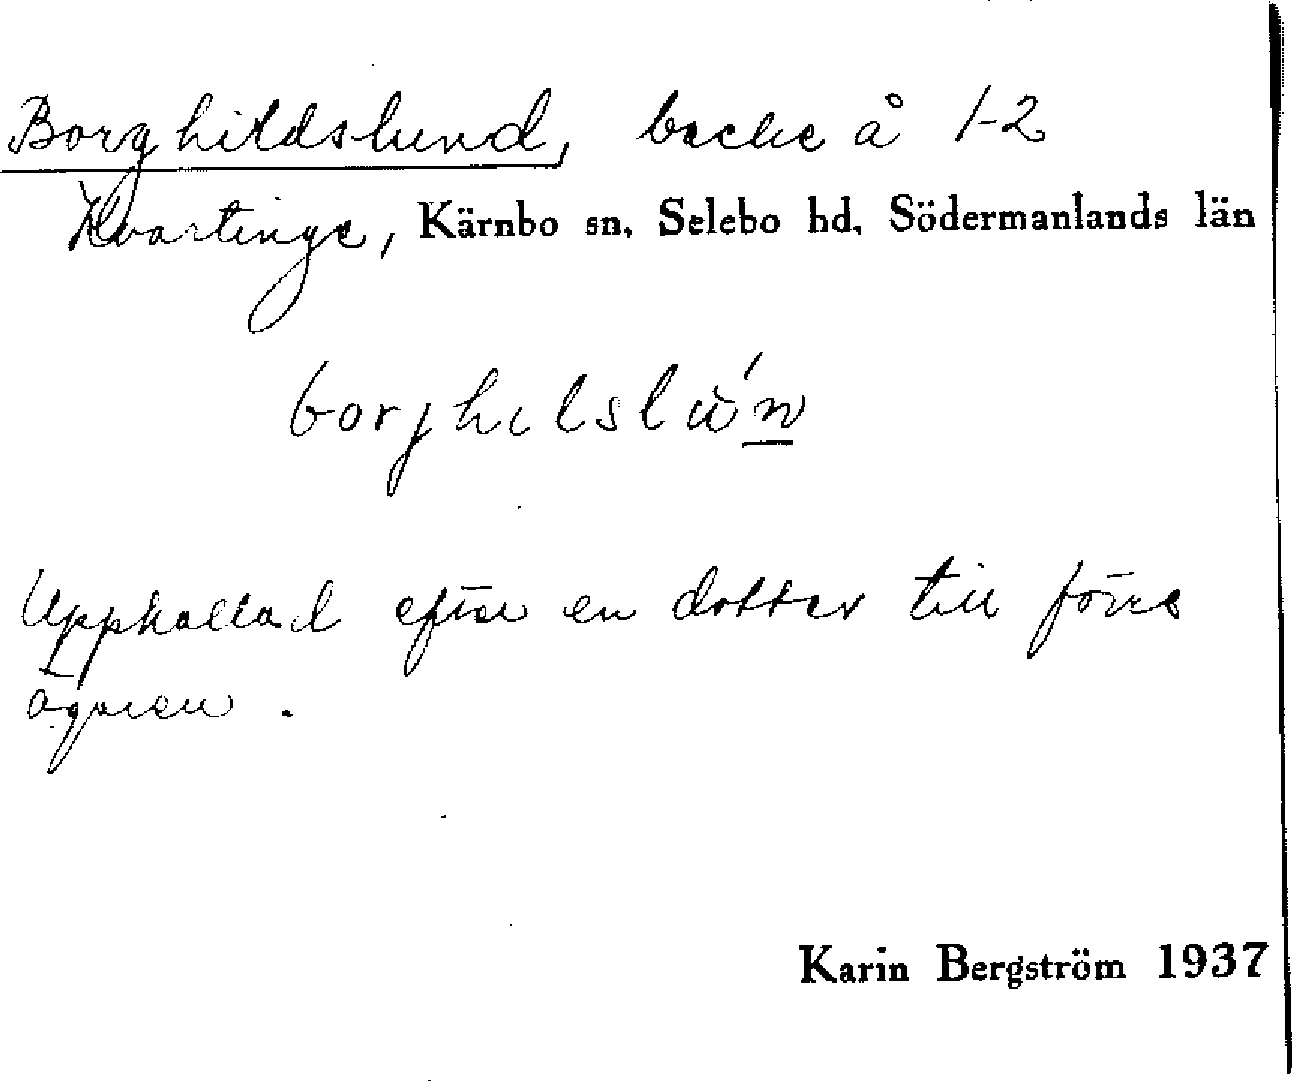 Borghildslund, backe å 1-2
Kvartinge, Kärnbo sn, Selebo hd, Södermanlands län
borjhilslu̇́n̲
Uppkallad efter en dotter till förre
ägaren.
Karin Bergström 1937